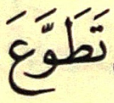 تَطَوَّعَ